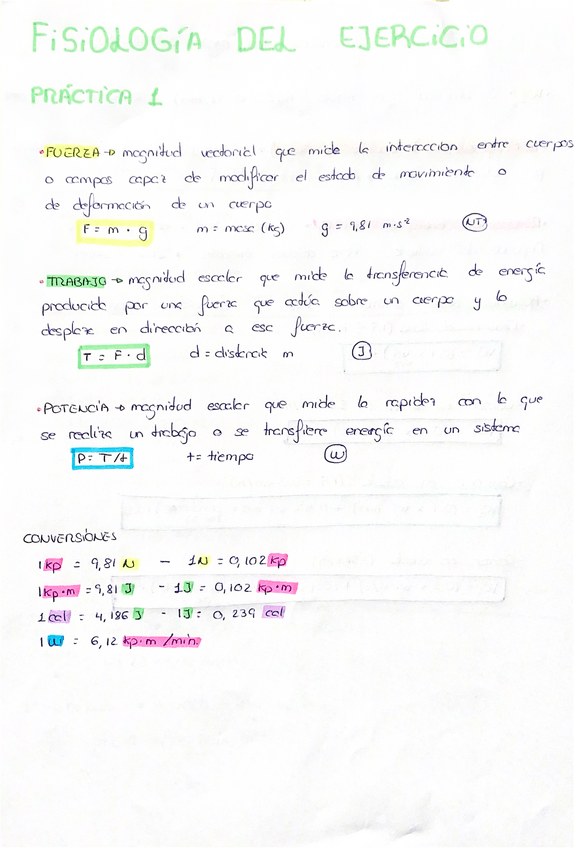 FISIOLOGÍA DEL EJERCICIO
PRÁCTICA 1
• FUERZA → magnitud vectorial que mide la interacción entre cuerpos
o campos capaz de modificar el estado de movimiento o
de deformación de un cuerpo
F = m · g m = masa (kg) g = 9,81 m·s² (NT)
• TRABAJO → magnitud escalar que mide la transferencia de energía
producida por una fuerza que actúa sobre un cuerpo y lo
desplaza en dirección a esa fuerza.
T = F · d d = distancia m (J)
• POTENCIA → magnitud escalar que mide la rapidez con la que
se realiza un trabajo o se transfiere energía en un sistema
P = T/t t = tiempo (W)
CONVERSIONES
1 kp = 9,81 N - 1N = 0,102 kp
1 kp·m = 9,81 J - 1J = 0,102 kp·m
1 cal = 4,186 J - 1J = 0,239 cal
1 W = 6,12 kp·m /min.